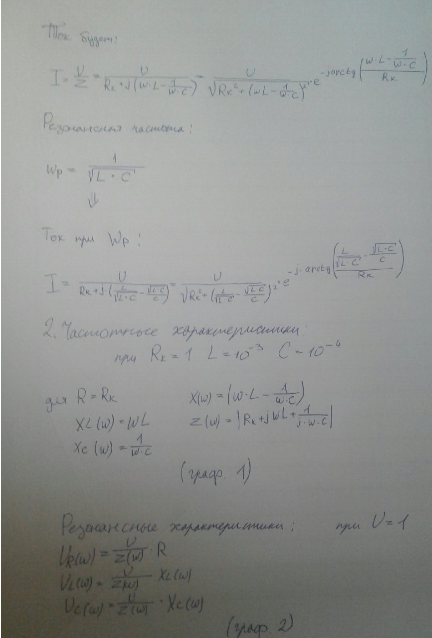 Ток будет:
I = U/Z = U/(Rк+j(W·L-1/(W·C))) = U/√(Rк²+(WL-1/(W·C))²) · e^(-jarctg((W·L-1/(W·C))/Rк))
Резонансная частота:
Wр = 1/√(L·C)
⇓
Ток при Wр:
I = U/(Rк+j(L/√(L·C)-√(L·C)/C)) = U/√(Rк²+(L/√(L·C)-√(L·C)/C)²) · e^(-j·arctg((L/√(L·C)-√(L·C)/C)/Rк))
2. Частотные характеристики
при Rк=1 L=10⁻³ C=10⁻⁴
для R=Rк X(W)=(W·L-1/(W·C))
XL(W)=WL Z(W)=|Rк+jWL+1/(j·W·C)|
XC(W)=1/(W·C)
(граф. 1)
Резонансные характеристики: при U=1
UR(W)=U/Z(W)·R
UL(W)=U/Z(W)·XL(W)
UC(W)=U/Z(W)·XC(W)
(граф. 2)